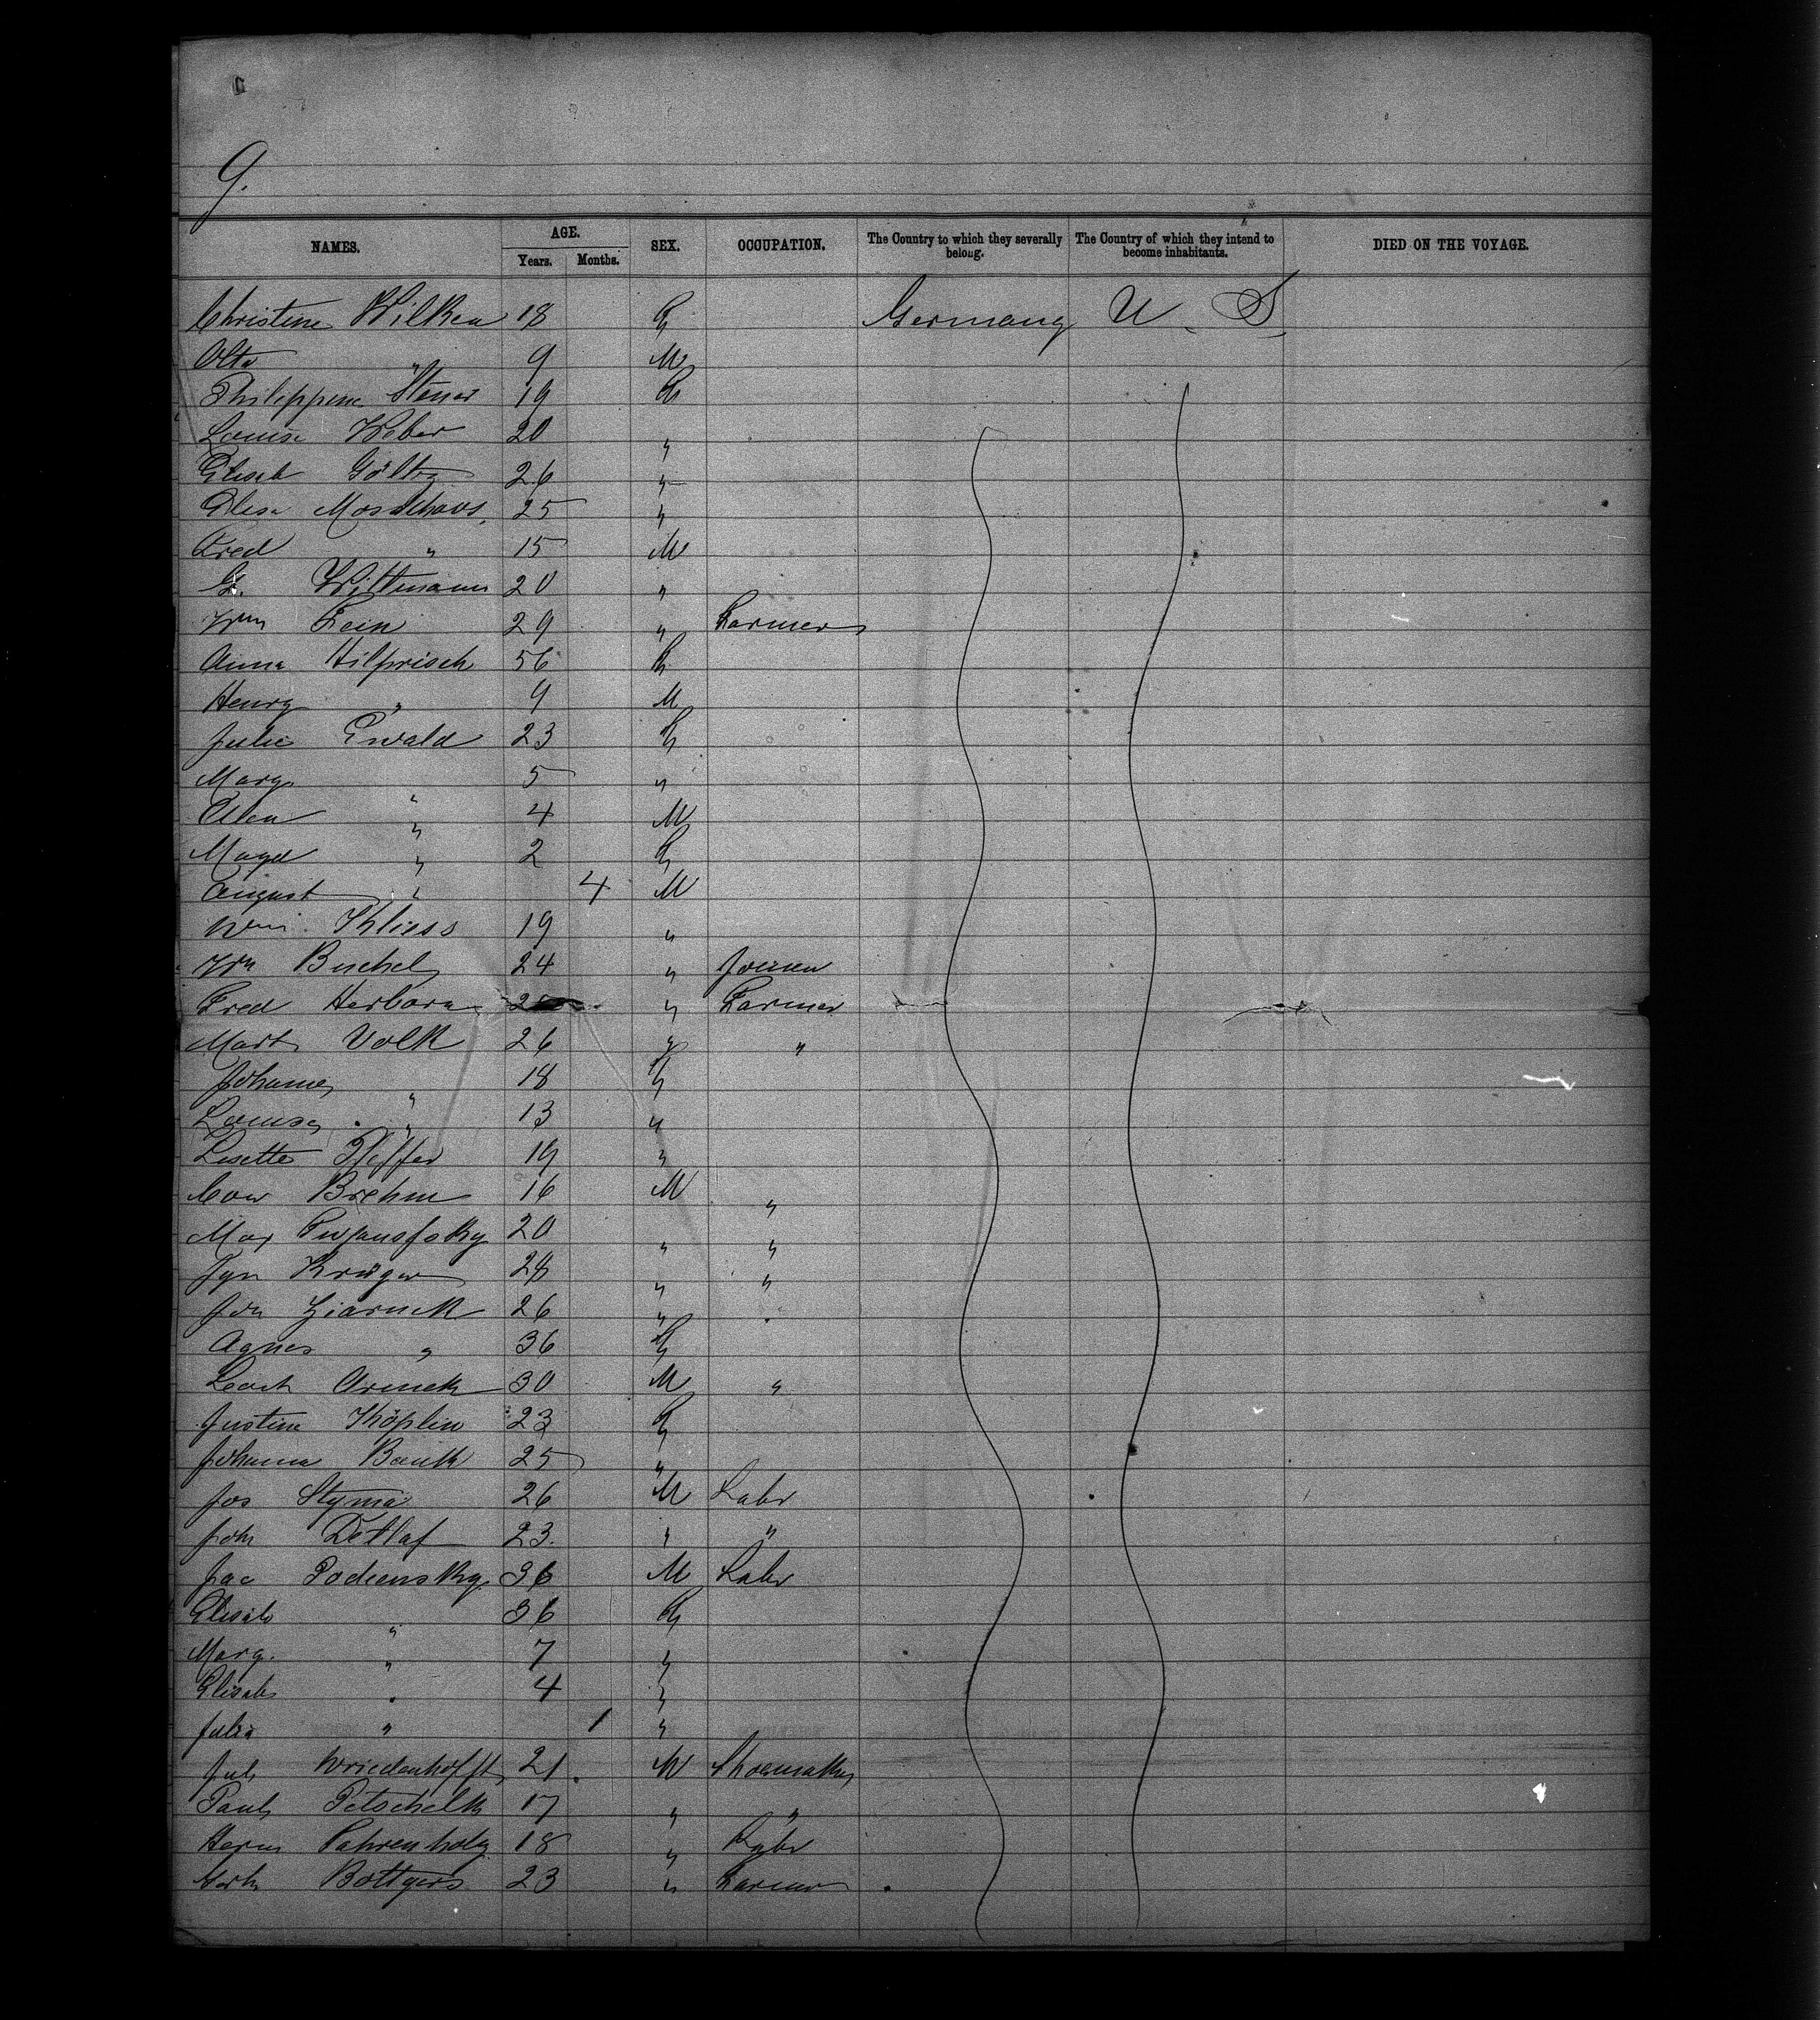 9.
NAMES. AGE. Years. Months. SEX. OCCUPATION. The Country to which they severally belong. The Country of which they intend to become inhabitants. DIED ON THE VOYAGE.
Christine Wilken 18 F Germany U. S
Otto " 9 M
Philippine 19 F
Louise Weber 20 "
Elisab 26 "
Elise 25 "
Fred " 15 M
G. Wittmann 20 "
Wm Fein 29 " Farmer
Anna Hilprisch 56 F
Henry " 9 M
Julie Ewald 23 F
Marg " 5 "
" 4 M
Magd " 2 F
August " 4 M
Wm. Kliess 19 "
Wm Buchel 24 " Joiner
Fred Herborn " Farmer
Mart Volk 26 " "
Johanne " 18 F
Louise " 13 "
Lisette Pfeffer 19 "
Brehm 16 M "
Max 20 " "
Krüger 28 " "
Joh 26 " "
Agnes " 36 F
30 M "
Justine Köplin 23 F
Johanna Bank 25 "
Jos Styma 26 M Labr
Joh Detlaf 23. " "
Jac Podiensky 36 M Labr
Elisab " 36 F
Marg. " 7 "
Elisab " 4 "
Julia " 1 "
Jul Wriedenhofft 21 M Shoemaker
Paul Petschelk 17 " "
Herm Fahrenholz 18 "
Böttgers 23 " Farmer